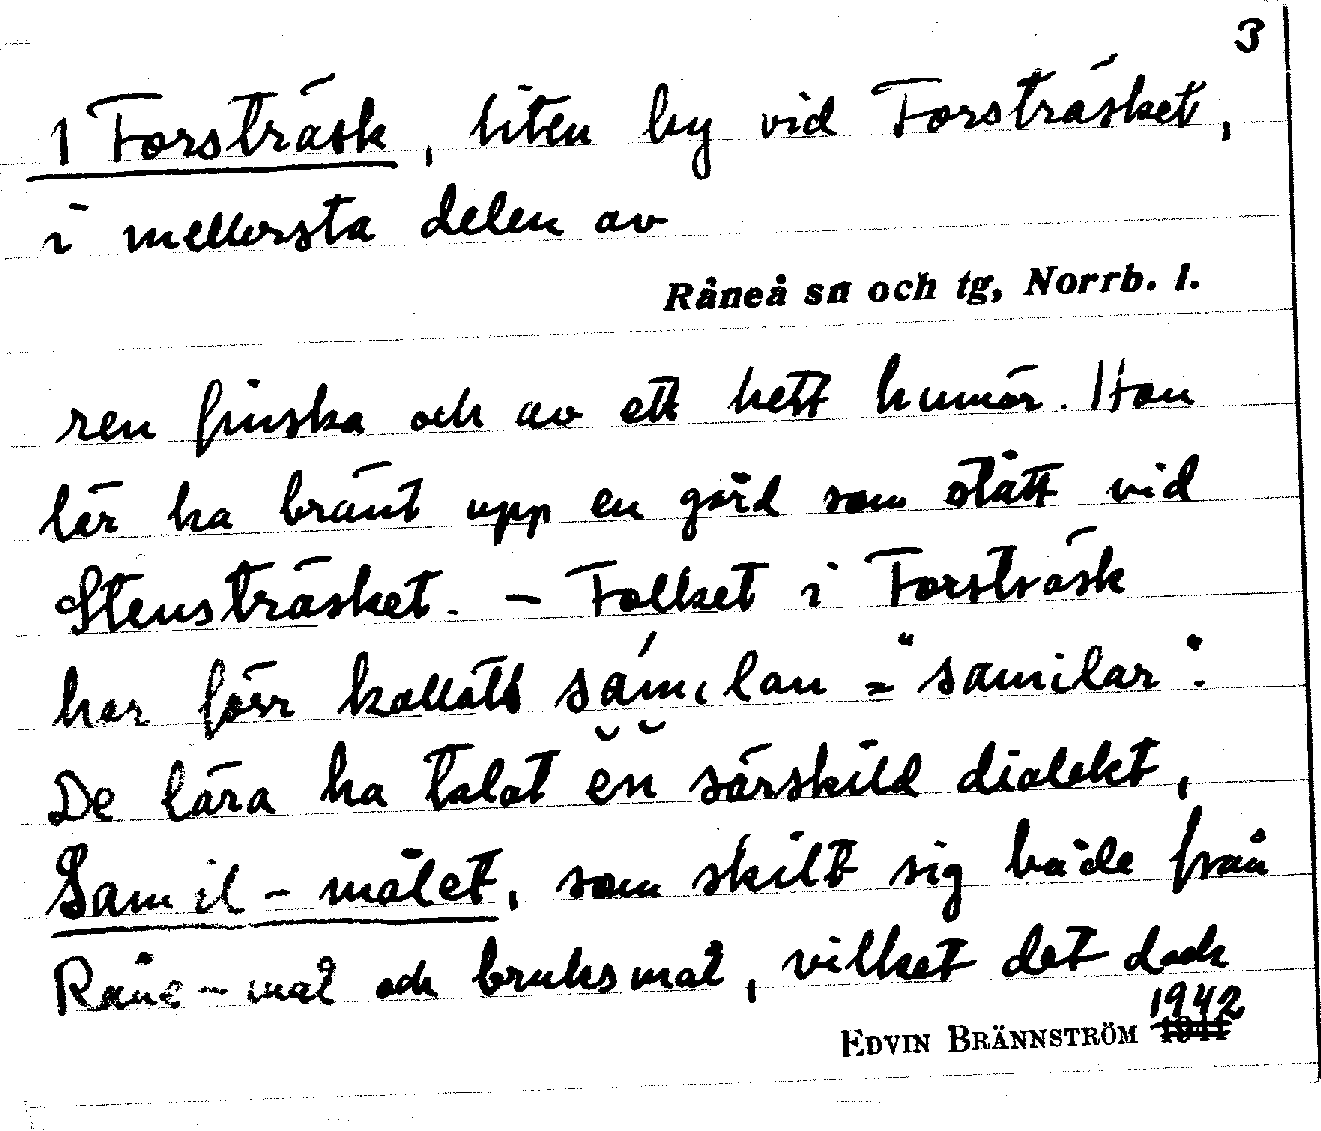 3
1 Forsträsk, liten by vid Forsträsket,
i mellersta delen av
Råneå sn och tg, Norrb. l.
ren finska och av ett hett humör. Hon
lär ha bränt upp en gård som stått vid
Stensträsket. - Folket i Forsträsk
har förr kallats sámılan = "samilar".
De lära ha talat en särskild dialekt,
Samil-målet, som skilt sig både från
Råne-mål och bruksmål, vilket det dock
EDVIN BRÄNNSTRÖM 1942